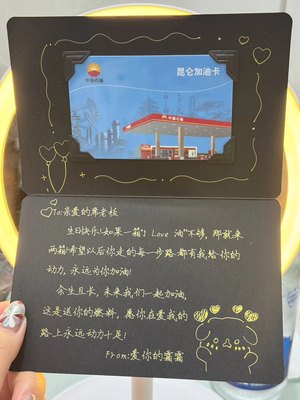 中国石油
昆仑加油卡
中国石油
To:亲爱的席老板
生日快乐!如果一箱“I Love 油”不够,那就来
两箱!希望以后你走的每一步路都有我给你的
动力,永远为你加油!
余生且长,未来我们一起加油,
这是送你的燃料,愿你在爱我的
路上永远动力十足!
From:爱你的霸霸